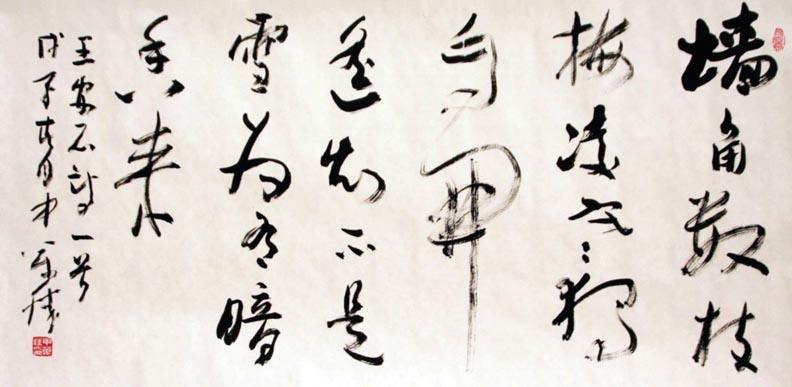 墙角数枝
梅凌寒独
自開
遥知不是
雪为有暗
香来
王安石诗一首
戊子春月中